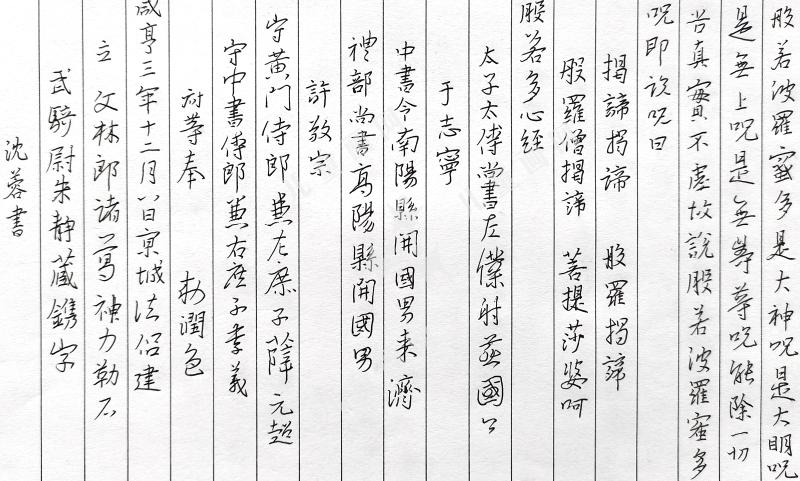 般若波羅蜜多是大神呪是大明呪
是無上呪是無等等呪能除一切
苦真實不虛故說般若波羅蜜多
呪即說呪曰
揭諦揭諦 般羅揭諦
般羅僧揭諦 菩提莎婆呵
般若多心經
太子太傅尚書左僕射燕國公
于志寧
中書令南陽縣開國男来濟
禮部尚書高陽縣開國男
許敬宗
守黃門侍郎兼左庶子薛元超
守中書侍郎兼右庶子李義
府等奉 勅潤色
咸亨三年十二月八日京城法侶建
立 文林郎諸葛神力勒石
武騎尉朱静藏鐫字
沈蓉書